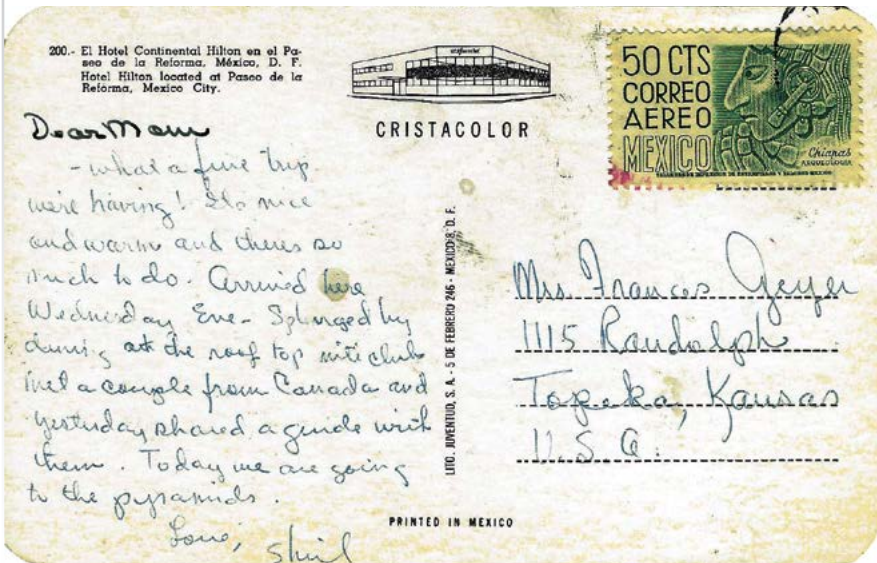 200.- El Hotel Continental Hilton en el Pa-
seo de la Reforma, México, D. F.
Hotel Hilton located at Paseo de la
Reforma, Mexico City.
CRISTACOLOR
50 CTS
CORREO
AEREO
MEXICO
Chiapas
ARQUEOLOGIA
Dear Mom
- what a fine trip
we're having! Its nice
and warm and theres so
much to do. Arrived here
Wednesday Eve- Splurged by
dining at the roof top nite club
met a couple from Canada and
yesterday shared a guide with
them. Today we are going
to the pyramids.
Love,
LITO. JUVENTUD, S. A. - 5 DE FEBRERO 246 - MEXICO 8, D. F.
Mrs. Frances Geyer
1115 Randolph
Topeka, Kansas
U.S.A.
PRINTED IN MEXICO